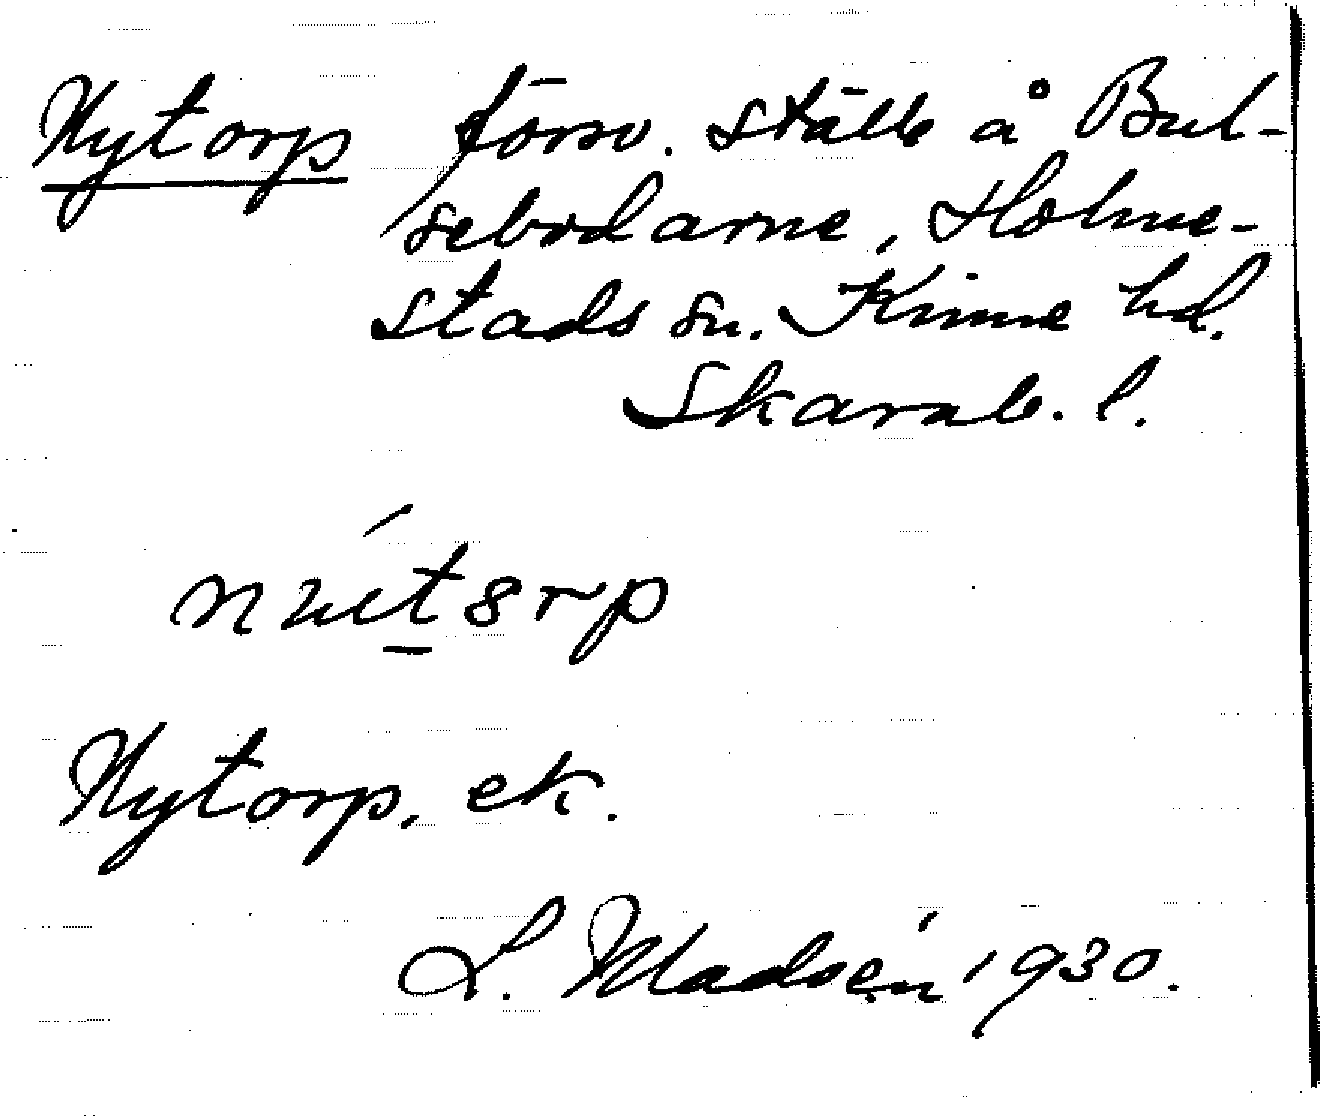 Nytorp försv. ställe å Bul-
sebodarne, Holme-
stads sn. Kinne hd.
Skarab. l.
Nytorp. ek.
L. Madsén 1930.